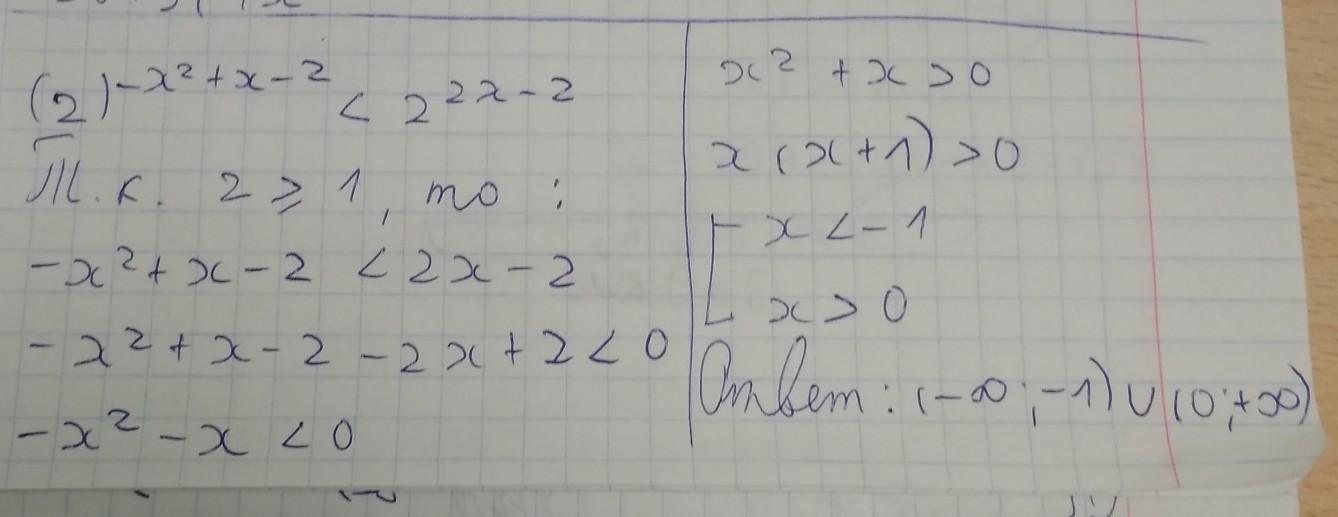 (2)^{-x²+x-2} < 2^{2x-2}
Т.к. 2 ⩾ 1, то :
-x²+x-2 < 2x-2
-x²+x-2-2x+2<0
-x²-x<0
x²+x>0
x(x+1)>0
[ x<-1
x>0
Ответ: (-∞;-1)∪(0;+∞)